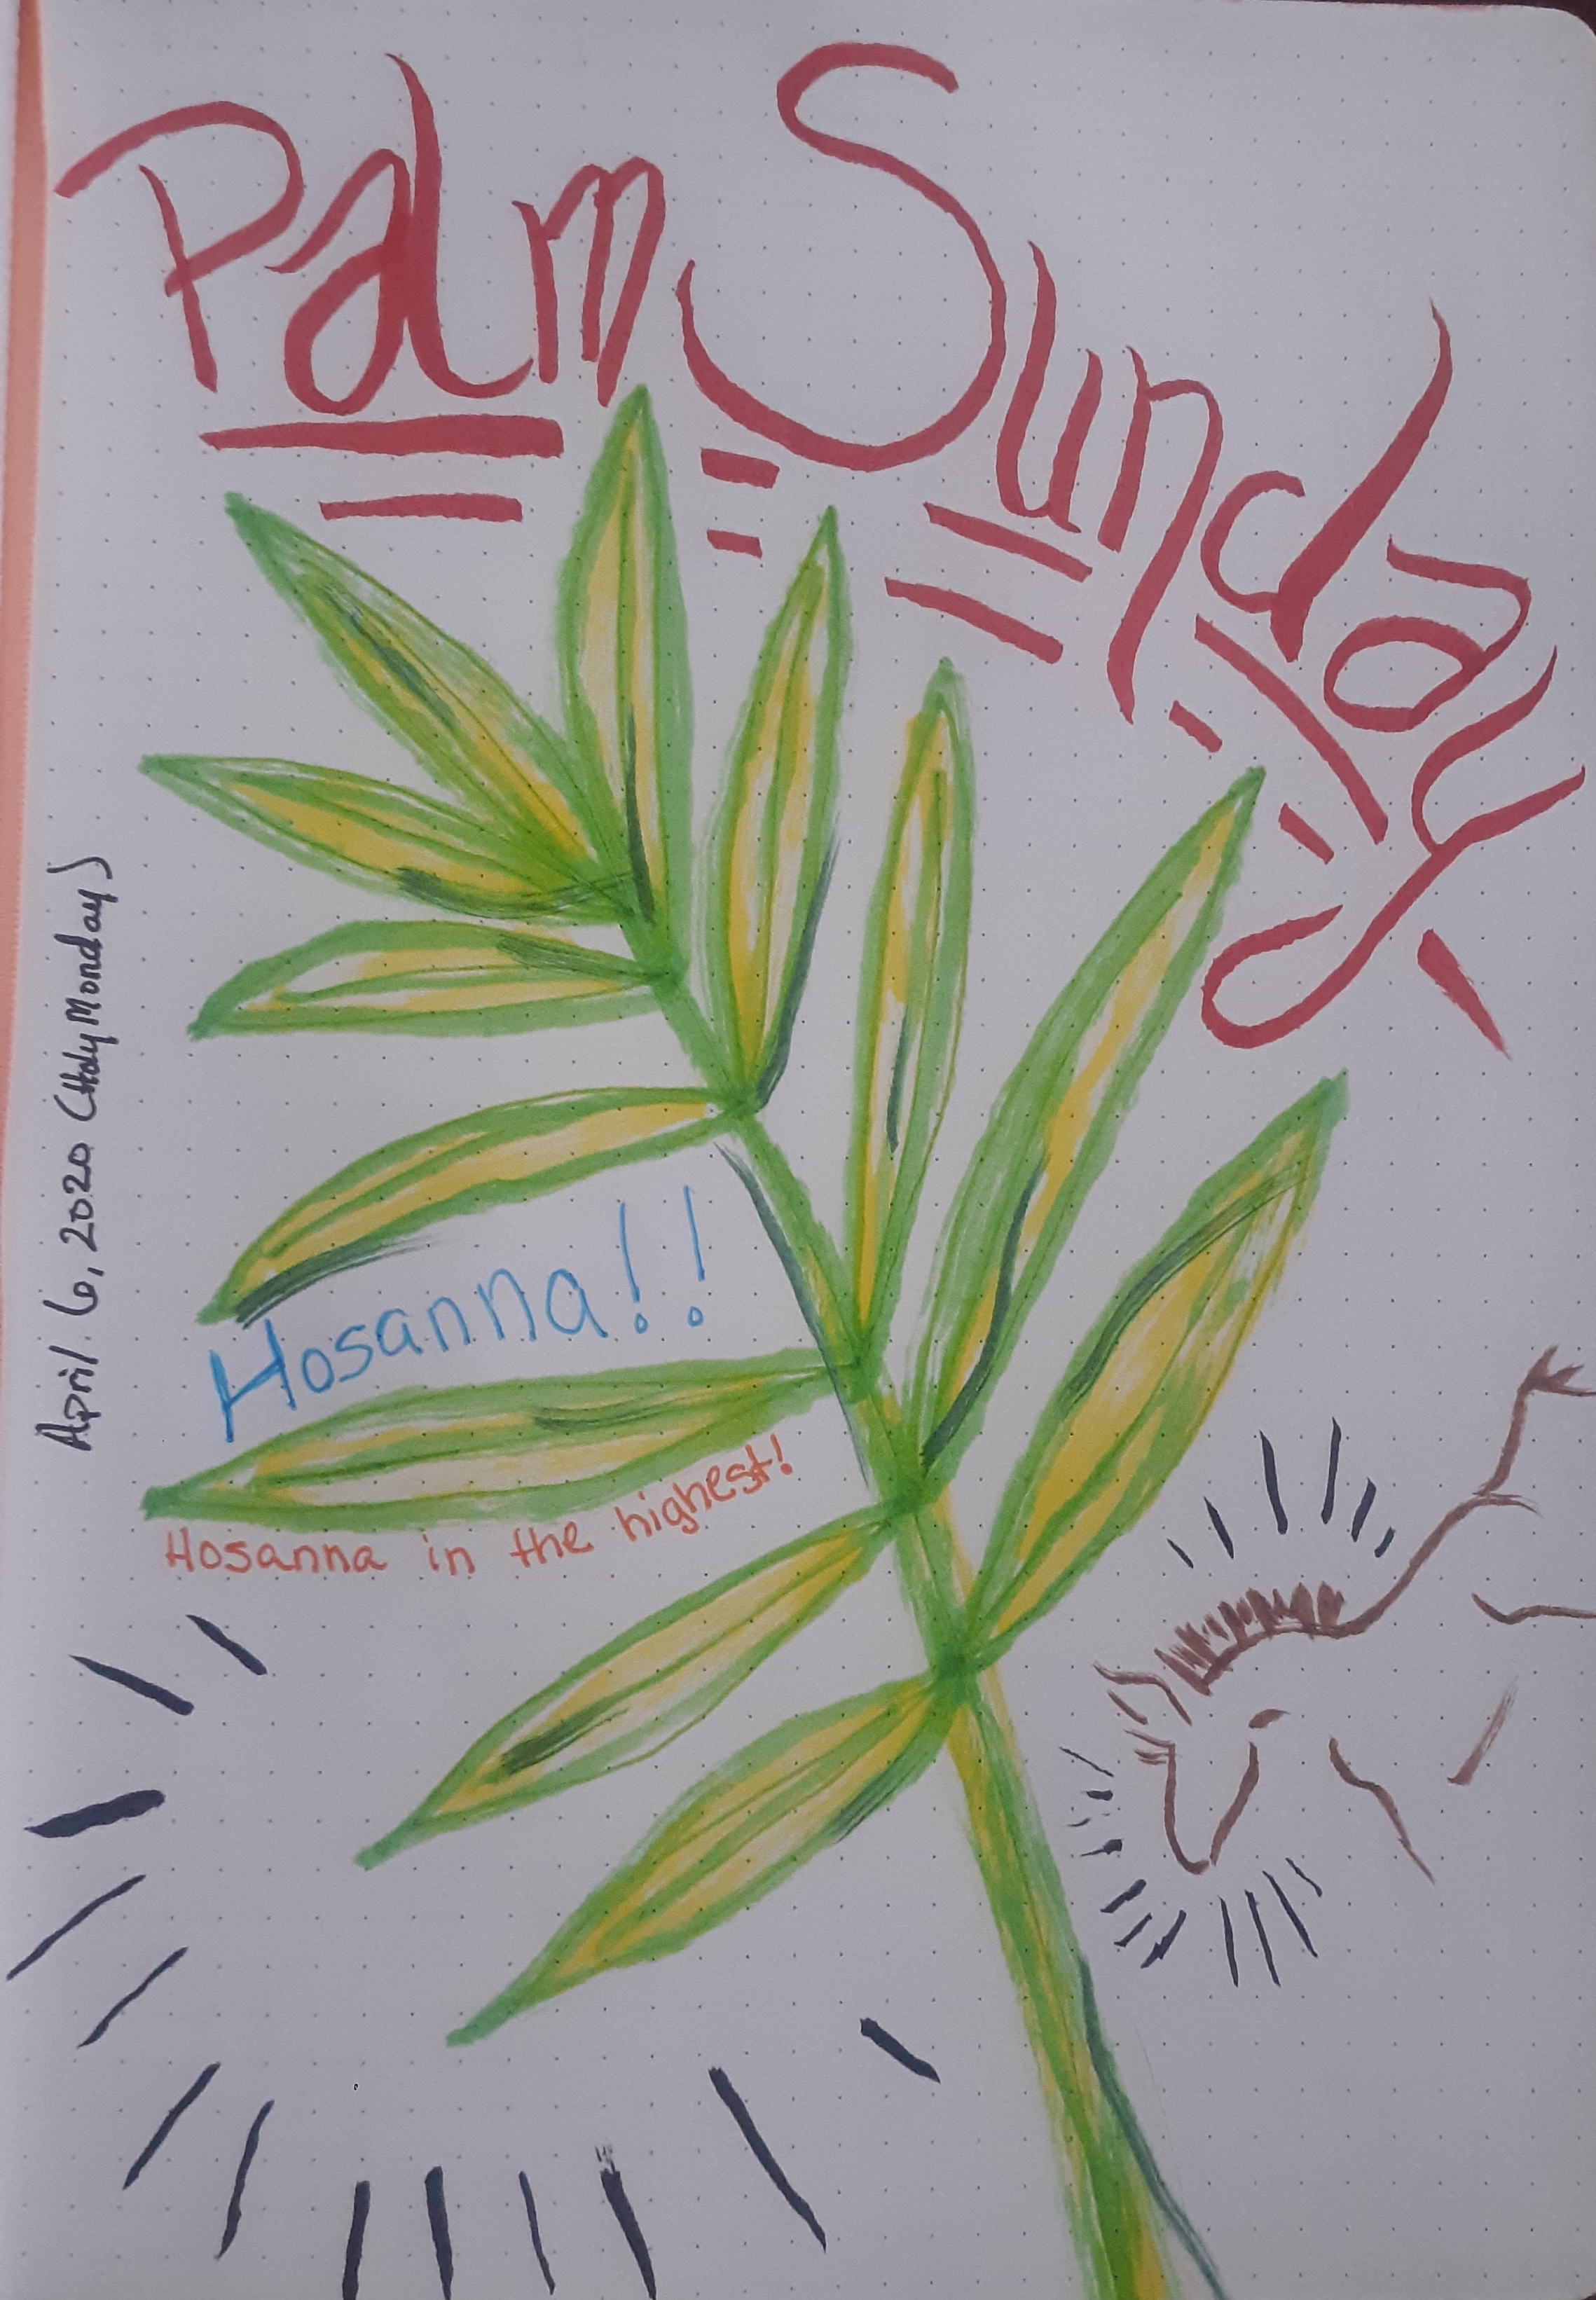 Palm Sunday
April 6, 2020 (Holy Monday)
Hosanna!!
Hosanna in the highest!